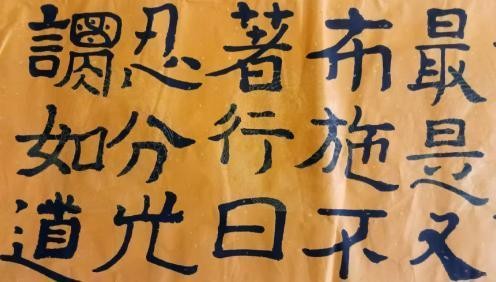 最是又
布施不
著行曰
忍分
如道